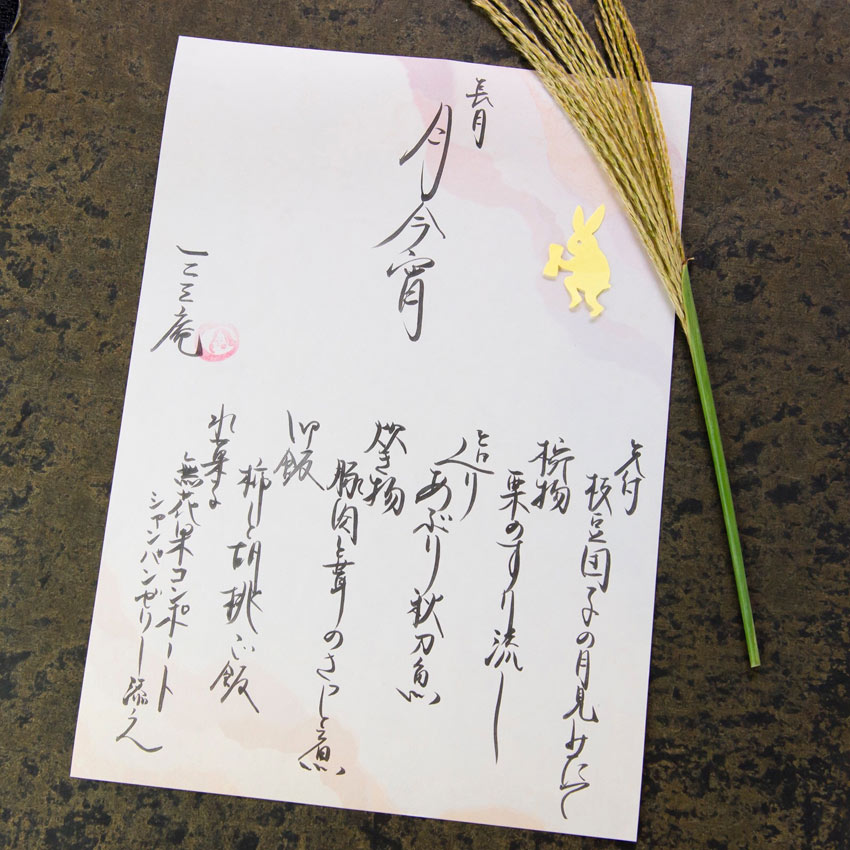 長月
月今宵
先付
枝豆団子の月見みたて
椀物
栗のすり流し
造り
あぶり秋刀魚
炊き物
豚肉と茸のさっと煮
御飯
柿と胡桃ご飯
水菓子
無花果コンポート
シャンパンゼリー添え
一二三庵